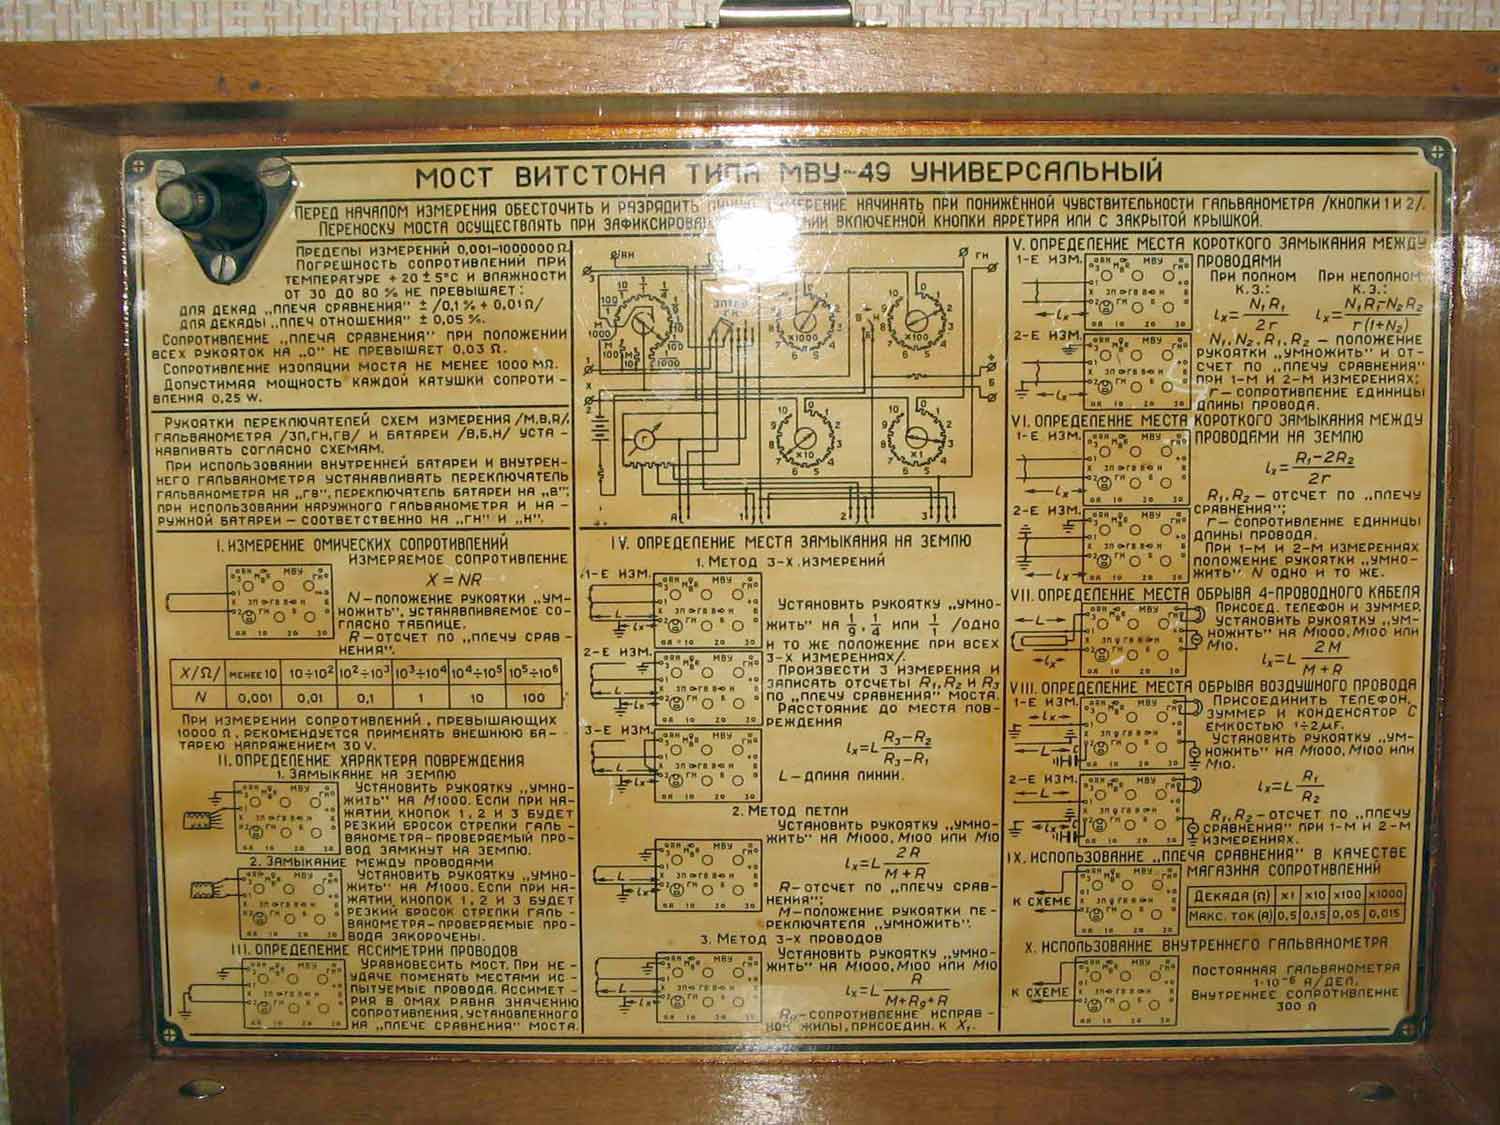 МОСТ ВИТСТОНА ТИПА МВУ-49 УНИВЕРСАЛЬНЫЙ
ПЕРЕД НАЧАЛОМ ИЗМЕРЕНИЯ ОБЕСТОЧИТЬ И РАЗРЯДИТЬ НАЧИНАТЬ ПРИ ПОНИЖЁННОЙ ЧУВСТВИТЕЛЬНОСТИ ГАЛЬВАНОМЕТРА /КНОПКИ 1 И 2/.
ПЕРЕНОСКУ МОСТА ОСУЩЕСТВЛЯТЬ ПРИ ВКЛЮЧЕННОЙ КНОПКИ АРРЕТИРА ИЛИ С ЗАКРЫТОЙ КРЫШКОЙ.
ПРЕДЕЛЫ ИЗМЕРЕНИЙ 0,001-1000000 Ω
ПОГРЕШНОСТЬ СОПРОТИВЛЕНИЙ ПРИ
ТЕМПЕРАТУРЕ +20 ± 5°С И ВЛАЖНОСТИ
ОТ 30 ДО 80 % НЕ ПРЕВЫШАЕТ:
ДЛЯ ДЕКАД „ПЛЕЧА СРАВНЕНИЯ" ± /0,1 % + 0,01 Ω/
ДЛЯ ДЕКАДЫ „ПЛЕЧ ОТНОШЕНИЯ" ± 0,05 %.
СОПРОТИВЛЕНИЕ „ПЛЕЧА СРАВНЕНИЯ" ПРИ ПОЛОЖЕНИИ
ВСЕХ РУКОЯТОК НА „0" НЕ ПРЕВЫШАЕТ 0,03 Ω.
СОПРОТИВЛЕНИЕ ИЗОЛЯЦИИ МОСТА НЕ МЕНЕЕ 1000 МΩ.
ДОПУСТИМАЯ МОЩНОСТЬ КАЖДОЙ КАТУШКИ СОПРОТИ-
ВЛЕНИЯ 0,25 W.
РУКОЯТКИ ПЕРЕКЛЮЧАТЕЛЕЙ СХЕМ ИЗМЕРЕНИЯ /М,В,Я/,
ГАЛЬВАНОМЕТРА /ЗП,ГН,ГВ/ И БАТАРЕИ /В,Б,Н/ УСТА-
НАВЛИВАТЬ СОГЛАСНО СХЕМАМ.
ПРИ ИСПОЛЬЗОВАНИИ ВНУТРЕННЕЙ БАТАРЕИ И ВНУТРЕН-
НЕГО ГАЛЬВАНОМЕТРА УСТАНАВЛИВАТЬ ПЕРЕКЛЮЧАТЕЛЬ
ГАЛЬВАНОМЕТРА НА „ГВ", ПЕРЕКЛЮЧАТЕЛЬ БАТАРЕИ НА „В";
ПРИ ИСПОЛЬЗОВАНИИ НАРУЖНОГО ГАЛЬВАНОМЕТРА И НА-
РУЖНОЙ БАТАРЕИ – СООТВЕТСТВЕННО НА „ГН" И „Н".
I. ИЗМЕРЕНИЕ ОМИЧЕСКИХ СОПРОТИВЛЕНИЙ
ИЗМЕРЯЕМОЕ СОПРОТИВЛЕНИЕ
X = NR
N – ПОЛОЖЕНИЕ РУКОЯТКИ „УМ-
НОЖИТЬ", УСТАНАВЛИВАЕМОЕ СО-
ГЛАСНО ТАБЛИЦЕ.
R – ОТСЧЕТ ПО „ПЛЕЧУ СРАВ-
НЕНИЯ".
X/Ω/ МЕНЕЕ 10 10÷10² 10²÷10³ 10³÷10⁴ 10⁴÷10⁵ 10⁵÷10⁶
N 0,001 0,01 0,1 1 10 100
ПРИ ИЗМЕРЕНИИ СОПРОТИВЛЕНИЙ, ПРЕВЫШАЮЩИХ
10000 Ω, РЕКОМЕНДУЕТСЯ ПРИМЕНЯТЬ ВНЕШНЮЮ БА-
ТАРЕЮ НАПРЯЖЕНИЕМ 30 V.
II. ОПРЕДЕЛЕНИЕ ХАРАКТЕРА ПОВРЕЖДЕНИЯ
1. ЗАМЫКАНИЕ НА ЗЕМЛЮ
УСТАНОВИТЬ РУКОЯТКУ „УМНО-
ЖИТЬ" НА М1000. ЕСЛИ ПРИ НА-
ЖАТИИ КНОПОК 1, 2 И 3 БУДЕТ
РЕЗКИЙ БРОСОК СТРЕЛКИ ГАЛЬ-
ВАНОМЕТРА-ПРОВЕРЯЕМЫЙ ПРО-
ВОД ЗАМКНУТ НА ЗЕМЛЮ.
2. ЗАМЫКАНИЕ МЕЖДУ ПРОВОДАМИ
УСТАНОВИТЬ РУКОЯТКУ „УМНО-
ЖИТЬ" НА М1000. ЕСЛИ ПРИ НА-
ЖАТИИ КНОПОК 1, 2 И 3 БУДЕТ
РЕЗКИЙ БРОСОК СТРЕЛКИ ГАЛЬ-
ВАНОМЕТРА-ПРОВЕРЯЕМЫЕ ПРО-
ВОДА ЗАКОРОЧЕНЫ.
III. ОПРЕДЕЛЕНИЕ АССИМЕТРИИ ПРОВОДОВ
УРАВНОВЕСИТЬ МОСТ. ПРИ НЕ-
УДАЧЕ ПОМЕНЯТЬ МЕСТАМИ ИС-
ПЫТУЕМЫЕ ПРОВОДА. АССИМЕТ-
РИЯ В ОМАХ РАВНА ЗНАЧЕНИЮ
СОПРОТИВЛЕНИЯ, УСТАНОВЛЕННОГО
НА „ПЛЕЧЕ СРАВНЕНИЯ" МОСТА.
IV. ОПРЕДЕЛЕНИЕ МЕСТА ЗАМЫКАНИЯ НА ЗЕМЛЮ
1. МЕТОД 3-Х ИЗМЕРЕНИЙ
1-Е ИЗМ.
2-Е ИЗМ.
3-Е ИЗМ.
УСТАНОВИТЬ РУКОЯТКУ „УМНО-
ЖИТЬ" НА 1/9, 1/4 ИЛИ 1/1 /ОДНО
И ТО ЖЕ ПОЛОЖЕНИЕ ПРИ ВСЕХ
3-Х ИЗМЕРЕНИЯХ/.
ПРОИЗВЕСТИ 3 ИЗМЕРЕНИЯ И
ЗАПИСАТЬ ОТСЧЕТЫ R₁, R₂ И R₃
ПО „ПЛЕЧУ СРАВНЕНИЯ" МОСТА.
РАССТОЯНИЕ ДО МЕСТА ПОВ-
РЕЖДЕНИЯ
lₓ = L (R₃-R₂)/(R₃-R₁)
L – ДЛИНА ЛИНИИ.
2. МЕТОД ПЕТЛИ
УСТАНОВИТЬ РУКОЯТКУ „УМНО-
ЖИТЬ" НА М1000, М100 ИЛИ М10
lₓ = L 2R/(M+R)
R – ОТСЧЕТ ПО „ПЛЕЧУ СРАВ-
НЕНИЯ";
М – ПОЛОЖЕНИЕ РУКОЯТКИ ПЕ-
РЕКЛЮЧАТЕЛЯ „УМНОЖИТЬ".
3. МЕТОД 3-Х ПРОВОДОВ
УСТАНОВИТЬ РУКОЯТКУ „УМНО-
ЖИТЬ" НА М1000, М100 ИЛИ М10
lₓ = L R/(M+R₉+R)
СОПРОТИВЛЕНИЕ ИСПРАВ-
НОЙ ЖИЛЫ, ПРИСОЕДИН. К X₁.
V. ОПРЕДЕЛЕНИЕ МЕСТА КОРОТКОГО ЗАМЫКАНИЯ МЕЖДУ
ПРОВОДАМИ
1-Е ИЗМ.
2-Е ИЗМ.
ПРИ ПОЛНОМ К.З.: lₓ = N₁R₁/2r
ПРИ НЕПОЛНОМ К.З.: lₓ = (N₁R₁-N₂R₂)/r(1+N₂)
N₁, N₂, R₁, R₂ – ПОЛОЖЕНИЕ
РУКОЯТКИ „УМНОЖИТЬ" И ОТ-
СЧЕТ ПО „ПЛЕЧУ СРАВНЕНИЯ"
ПРИ 1-М И 2-М ИЗМЕРЕНИЯХ;
r – СОПРОТИВЛЕНИЕ ЕДИНИЦЫ
ДЛИНЫ ПРОВОДА.
VI. ОПРЕДЕЛЕНИЕ МЕСТА КОРОТКОГО ЗАМЫКАНИЯ МЕЖДУ
ПРОВОДАМИ НА ЗЕМЛЮ
1-Е ИЗМ.
2-Е ИЗМ.
lₓ = (R₁-2R₂)/2r
R₁, R₂ – ОТСЧЕТ ПО „ПЛЕЧУ
СРАВНЕНИЯ";
r – СОПРОТИВЛЕНИЕ ЕДИНИЦЫ
ДЛИНЫ ПРОВОДА.
ПРИ 1-М И 2-М ИЗМЕРЕНИЯХ
ПОЛОЖЕНИЕ РУКОЯТКИ „УМНО-
ЖИТЬ" N ОДНО И ТО ЖЕ.
VII. ОПРЕДЕЛЕНИЕ МЕСТА ОБРЫВА 4-ПРОВОДНОГО КАБЕЛЯ
ПРИСОЕД. ТЕЛЕФОН И ЗУММЕР.
УСТАНОВИТЬ РУКОЯТКУ „УМ-
НОЖИТЬ" НА М1000, М100 ИЛИ
М10.
lₓ = L 2M/(M+R)
VIII. ОПРЕДЕЛЕНИЕ МЕСТА ОБРЫВА ВОЗДУШНОГО ПРОВОДА
1-Е ИЗМ.
2-Е ИЗМ.
ПРИСОЕДИНИТЬ ТЕЛЕФОН,
ЗУММЕР И КОНДЕНСАТОР С
ЕМКОСТЬЮ 1÷2 μF.
УСТАНОВИТЬ РУКОЯТКУ „УМ-
НОЖИТЬ" НА М1000, М100 ИЛИ
М10.
lₓ = L R₁/R₂
R₁, R₂ – ОТСЧЕТ ПО „ПЛЕЧУ
СРАВНЕНИЯ" ПРИ 1-М И 2-М
ИЗМЕРЕНИЯХ.
IX. ИСПОЛЬЗОВАНИЕ „ПЛЕЧА СРАВНЕНИЯ" В КАЧЕСТВЕ
МАГАЗИНА СОПРОТИВЛЕНИЙ
К СХЕМЕ
ДЕКАДА (Ω) x1 x10 x100 x1000
МАКС. ТОК (А) 0,5 0,15 0,05 0,015
X. ИСПОЛЬЗОВАНИЕ ВНУТРЕННЕГО ГАЛЬВАНОМЕТРА
К СХЕМЕ
ПОСТОЯННАЯ ГАЛЬВАНОМЕТРА
1·10⁻⁶ А/ДЕЛ.
ВНУТРЕННЕЕ СОПРОТИВЛЕНИЕ
300 Ω